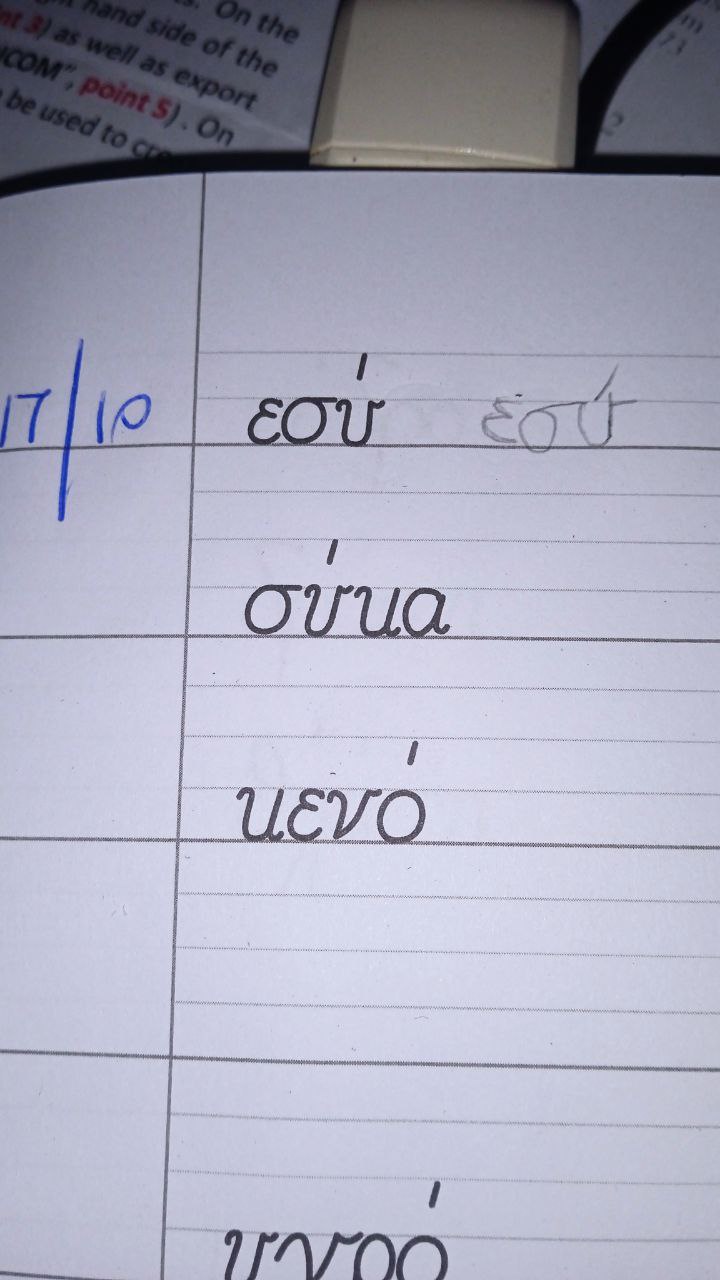 s. On the
hand side of the
nt 3) as well as export
ICOM", point 5). On
be used to
17/10 εσύ εσύ
σύκα
κενό
υγρό